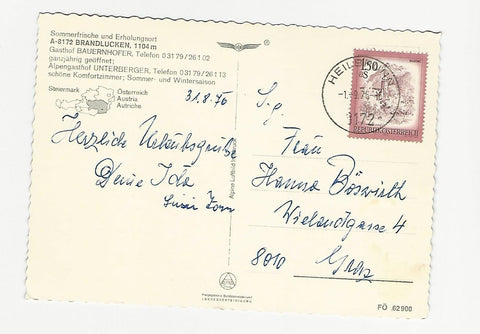 Sommerfrische und Erholungsort
A-8172 BRANDLUCKEN, 1104 m
Gasthof BAUERNHOFER, Telefon 03179/26102
ganzjährig geöffnet;
Alpengasthof UNTERBERGER, Telefon 03179/26113
schöne Komfortzimmer; Sommer- und Wintersaison
Steiermark
Österreich
Austria
Autriche
31.8.76
Herzliche Urlaubsgrüße
Deine Ida
Alpine Luftbild
®
S.g.
Frau
Hanna Böswirth
Wielandgasse 4
8010 Graz
HEIL
8172
1.50
S
REPUBLIK ÖSTERREICH
FÖ 62900